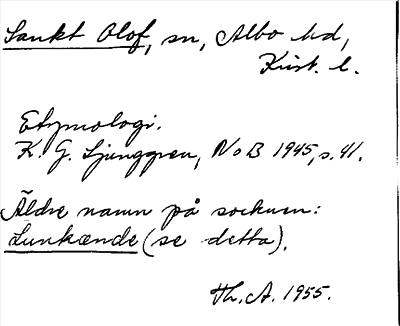 Sankt Olof, sn, Albo hd,
Krist. l.
Etymologi.
K. G. Ljunggren, NoB 1945, s. 41.
Äldre namn på socknen:
Lunkænde (se detta).
Th. A. 1955.